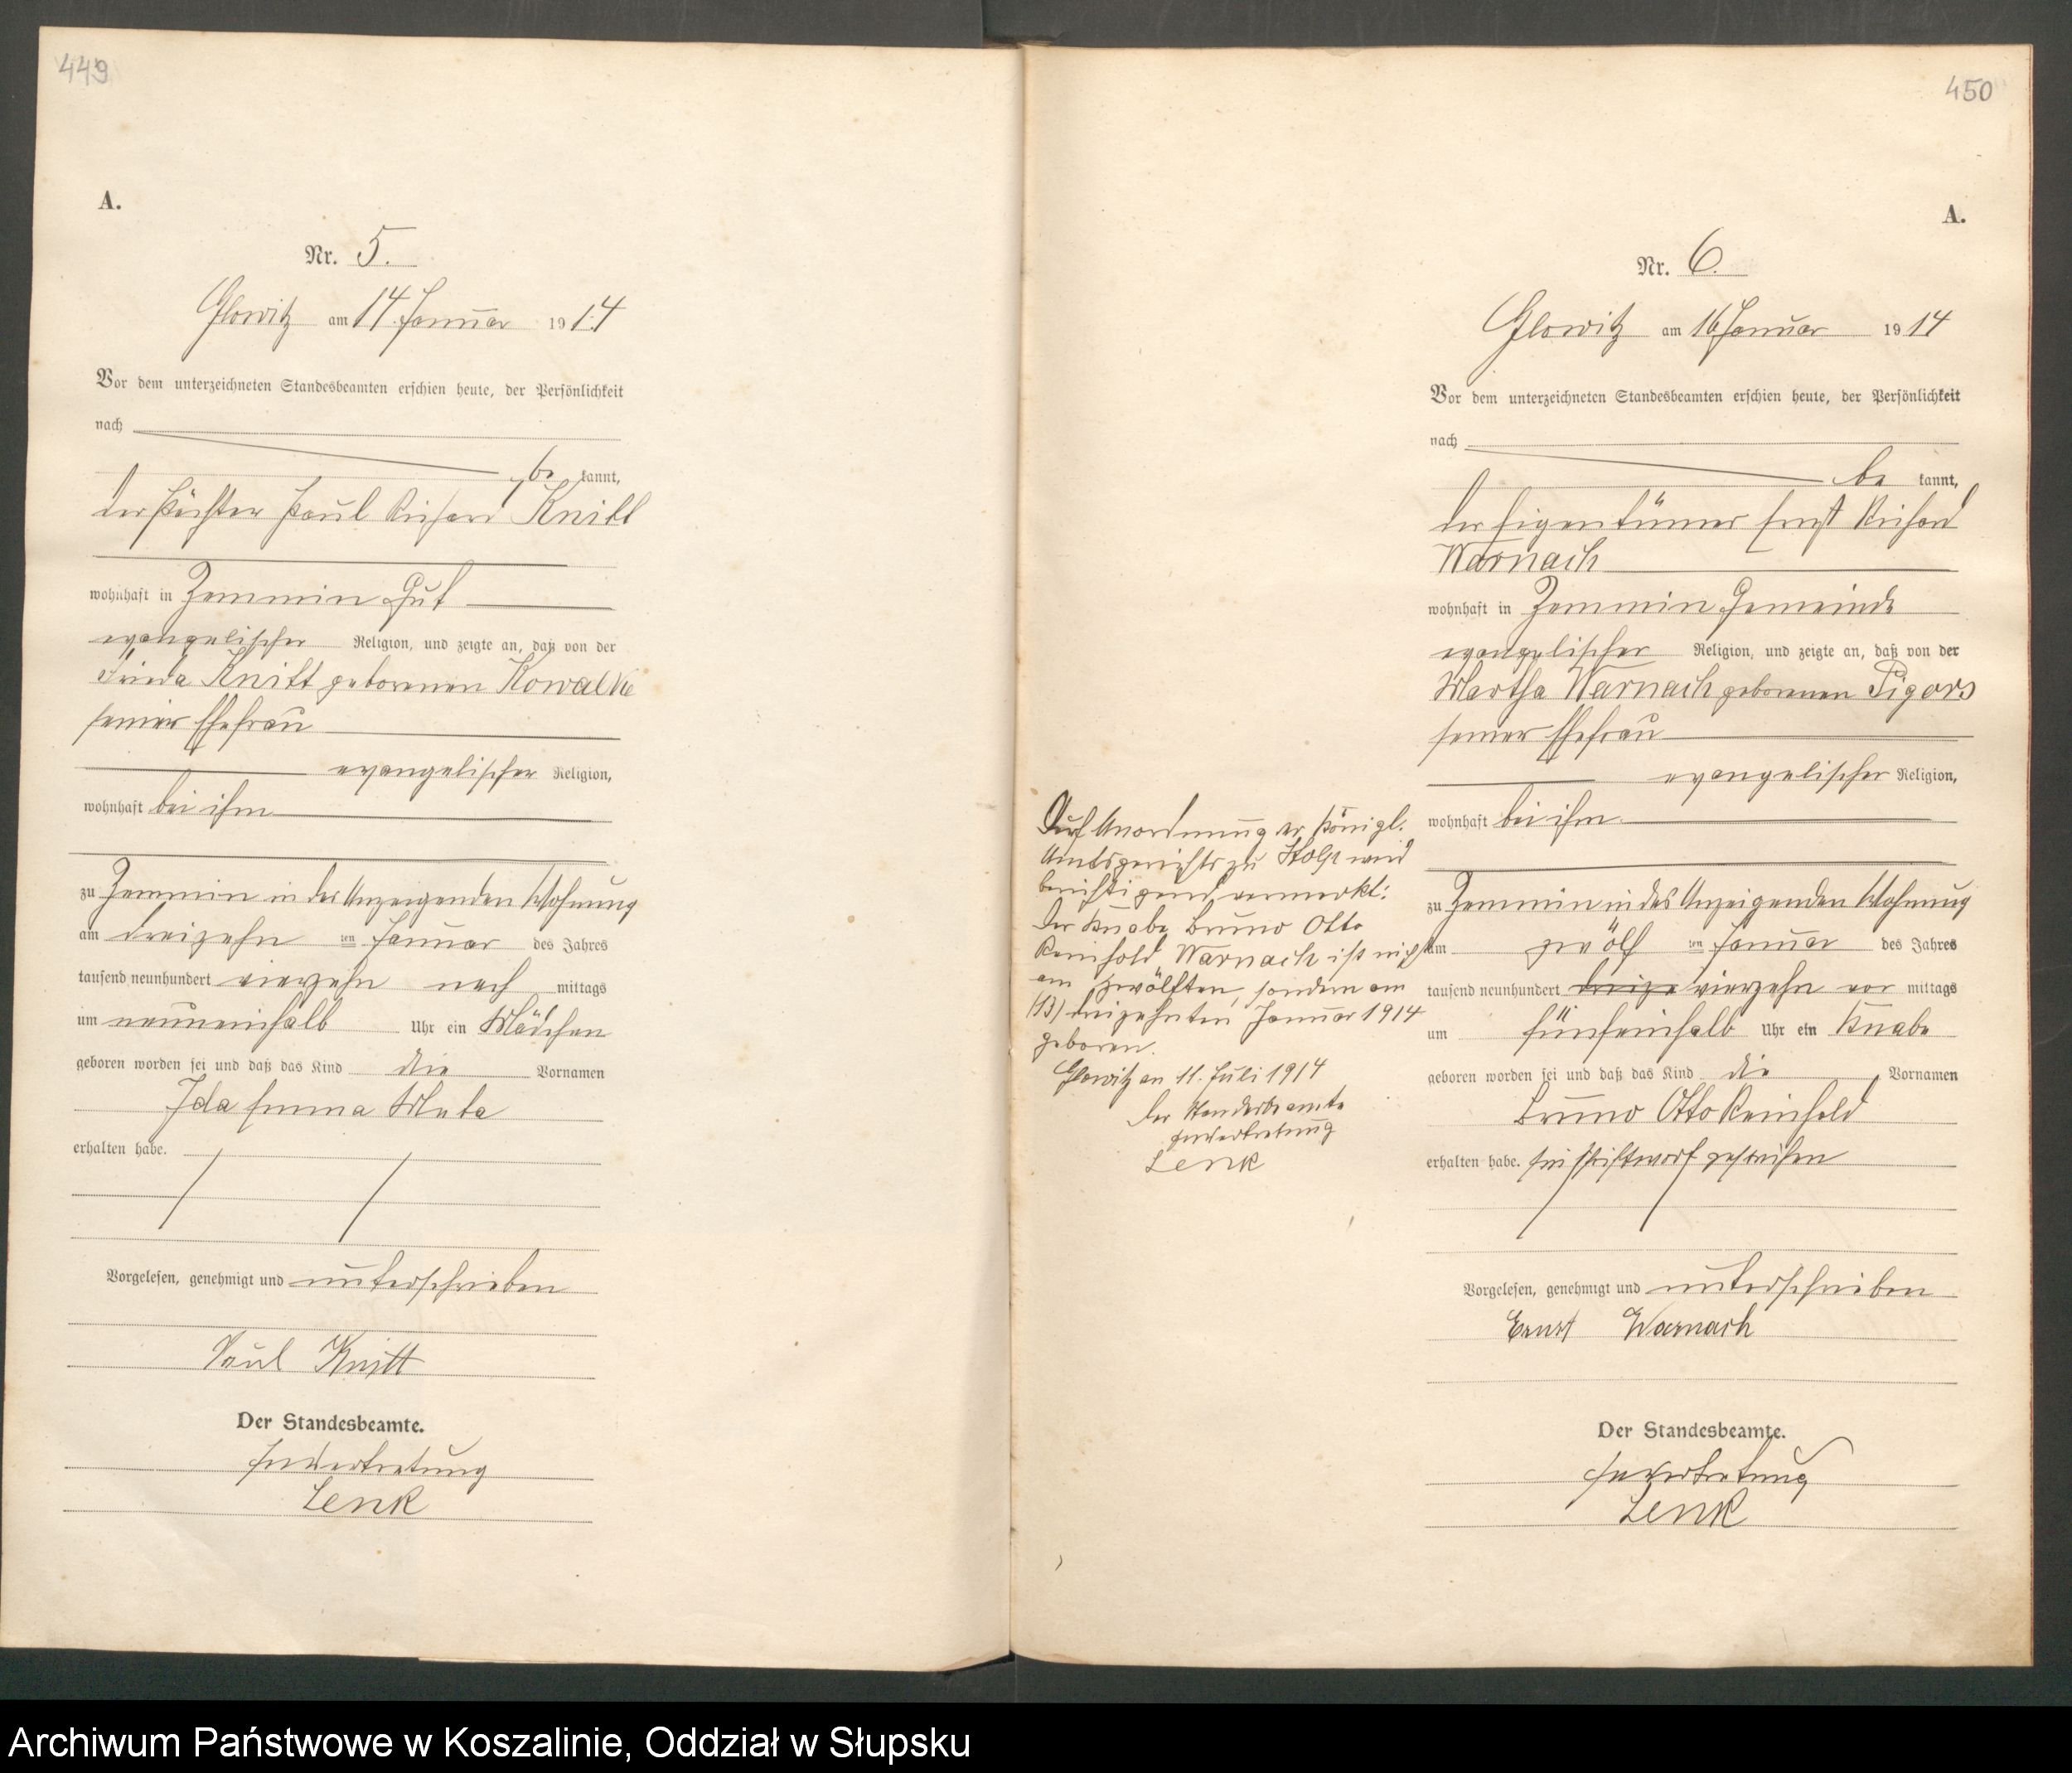 449
A.
Nr. 5.
Glowitz am 14. Januar 1914
Vor dem unterzeichneten Standesbeamten erschien heute, der Persönlichkeit
nach
be kannt,
der Pächter Paul Richard Knitt
wohnhaft in Zemmin Gut
evangelischer Religion, und zeigte an, daß von der
Frieda Knitt geborenen Kowalke
seiner Ehefrau
evangelischer Religion,
wohnhaft bei ihm
zu Zemmin in des Anzeigenden Wohnung
am dreizehn ten Januar des Jahres
tausend neunhundert vierzehn nach mittags
um neuneinhalb Uhr ein Mädchen
geboren worden sei und daß das Kind die Vornamen
Ida Emma Meta
erhalten habe.
Vorgelesen, genehmigt und unterschrieben
Paul Knitt
Der Standesbeamte.
In Vertretung
Lenk
450
A.
Nr. 6.
Glowitz am 16 Januar 1914
Vor dem unterzeichneten Standesbeamten erschien heute, der Persönlichkeit
nach
be kannt,
der Eigentümer Ernst Richard
Warnach
wohnhaft in Zemmin Gemeinde
evangelischer Religion, und zeigte an, daß von der
Martha Warnach geborenen Pigors
seiner Ehefrau
evangelischer Religion,
wohnhaft bei ihm
zu Zemmin in des Anzeigenden Wohnung
am zwölf ten Januar des Jahres
tausend neunhundert dreize vierzehn vor mittags
um fünfeinhalb Uhr ein Knabe
geboren worden sei und daß das Kind die Vornamen
Bruno Otto Reinhold
erhalten habe. gestrichen
Vorgelesen, genehmigt und unterschrieben
Ernst Warnach
Der Standesbeamte.
In Vertretung
Lenk
Auf Anordnung der Königl.
Amtsgerichts zu Stolp wird
berichtigend vermerkt:
Der Knabe Bruno Otto
Reinhold Warnach ist nicht
am zwölften, sondern am
(13) dreizehnten Januar 1914
geboren.
Glowitz an 11. Juli 1914
Der Standesbeamte
In Vertretung
Lenk
Archiwum Państwowe w Koszalinie, Oddział w Słupsku